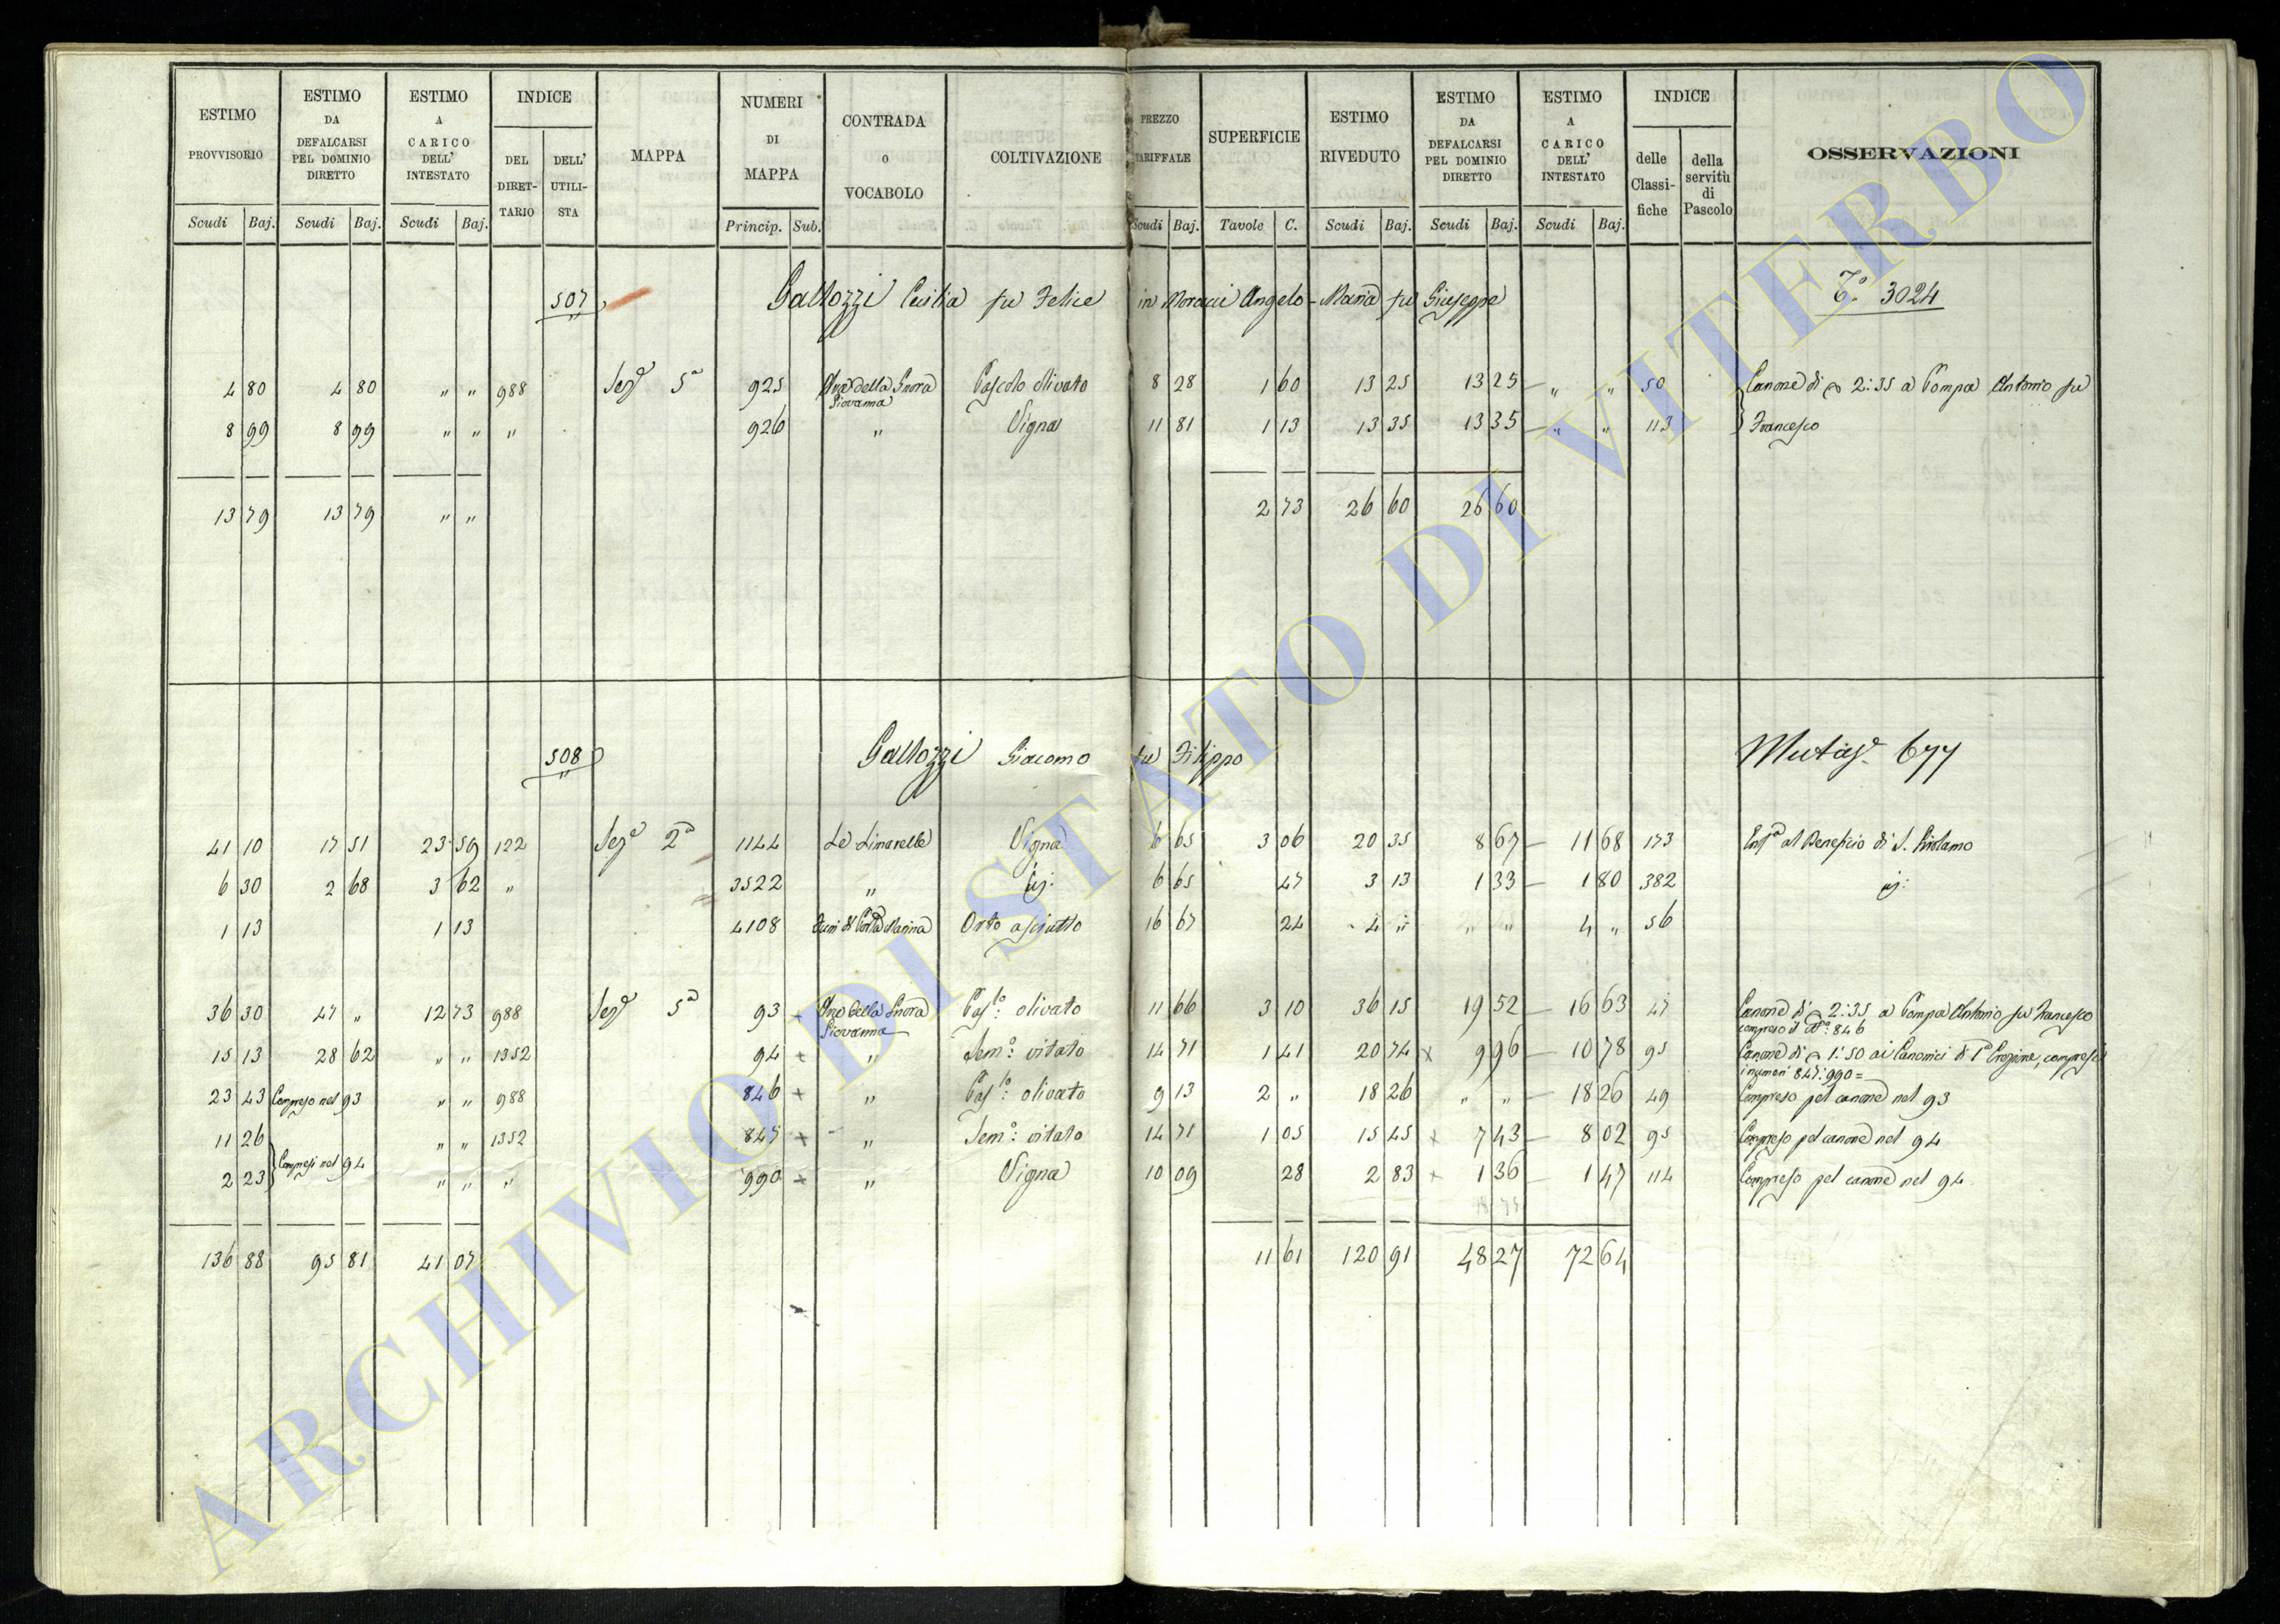 ESTIMO PROVVISORIO Scudi Baj. ESTIMO DA DEFALCARSI PEL DOMINIO DIRETTO Scudi Baj. ESTIMO A CARICO DELL' INTESTATO Scudi Baj. INDICE DEL DIRET-TARIO DELL' UTILI-STA MAPPA NUMERI DI MAPPA Princip. Sub. CONTRADA O VOCABOLO COLTIVAZIONE PREZZO TARIFFALE Scudi Baj. SUPERFICIE Tavole C. ESTIMO RIVEDUTO Scudi Baj. ESTIMO DA DEFALCARSI PEL DOMINIO DIRETTO Scudi Baj. ESTIMO A CARICO DELL' INTESTATO Scudi Baj. INDICE delle Classi-fiche della servitù di Pascolo OSSERVAZIONI
507 Gallozzi Cecilia fu Felice in Moracci Angelo-Maria fu Giuseppe 3024
4 80 4 80 " " 988 Sezᵉ 5ª 925 della Suora Giovanna Pascolo olivato 8 28 1 60 13 25 13 25 — " " 50 Canone di 2:35 a Pompa Antonio fu
8 99 8 99 " " " 926 " Vigna 11 81 1 13 13 35 13 35 — " " 113 Francesco
13 79 13 79 " " 2 73 26 60 26 60
508 Gallozzi Giacomo fu Filippo 677
41 10 17 51 23 59 122 Sezᵉ 2ª 1144 Le Linarelle Vigna 6 65 3 06 20 35 8 67 — 11 68 173 al Beneficio di S. Girolamo
6 30 2 68 3 62 " 3522 " 6 65 47 3 13 1 33 — 1 80 382
1 13 1 13 4108 Orto asciutto 16 67 24 4 " " " 4 " 56
36 30 47 " 12 73 988 Sezᵉ 5ª 93 della Suora Giovanna Pasᵗᵒ: olivato 11 66 3 10 36 15 19 52 — 16 63 47 Canone di 2:35 a Pompa Antonio fu Francesco
compreso il Nº: 846
15 13 28 62 " " 1352 94 x " Semº: vitato 14 71 1 41 20 74 x 9 96 — 10 78 95 Canone di 1:50 ai Canonici di compresi
i numeri 847:990=
23 43 Compreso nel 93 " " 988 846 x " Pasᵗᵒ: olivato 9 13 2 " 18 26 " " — 18 26 49 Compreso pel canone nel 93
11 26 Compresi nel 94 " " 1352 847 x " Semº: vitato 14 71 1 05 15 45 x 7 43 — 8 02 95 Compreso pel canone nel 94
2 23 " " " 990 x " Vigna 10 09 28 2 83 x 1 36 — 1 47 114 Compreso pel canone nel 94
136 88 95 81 41 07 11 61 120 91 48 27 72 64
ARCHIVIO DI STATO DI VITERBO